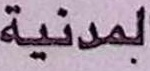 لمدنية